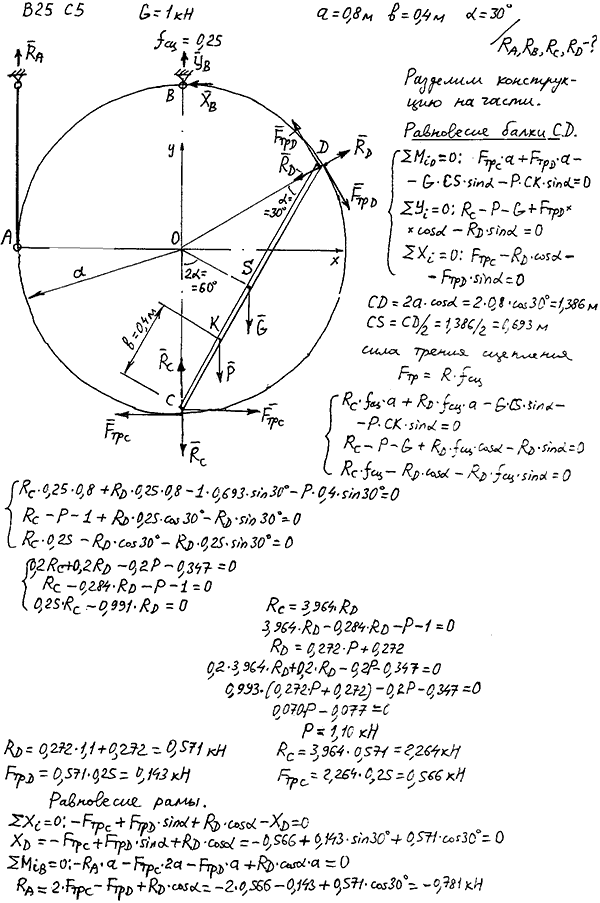 B25 C5 G=1кН a=0,8м b=0,4м α=30°
fсц=0,25
R_A, R_B, R_C, R_D-?
R̄_A
Ȳ_B
B
X̄_B
Разделим конструк-
цию на части.
Равновесие балки CD.
F̄трD
D
R̄_D
R̄_D
α=
=30°
F̄трD
y
A
O
x
a
2α=
=60°
S
Ḡ
K
P̄
b=0,4м
R̄_C
C
F̄трC
F̄трC
R̄_C
ΣMiD=0: FтрC·a+FтрD·a-
-G·CS·sinα-P·CK·sinα=0
ΣYi=0; Rc-P-G+FтрD×
×cosα-R_D·sinα=0
ΣXi=0: FтрC-R_D·cosα-
-FтрD·sinα=0
CD=2a·cosα=2·0,8·cos30°=1,386м
CS=CD/2=1,386/2=0,693м
сила трения сцепления
Fтр=R·fсц
Rc·fсц·a+R_D·fсц·a-G·CS·sinα-
-P·CK·sinα=0
Rc-P-G+R_D·fсц·cosα-R_D·sinα=0
Rc·fсц-R_D·cosα-R_D·fсц·sinα=0
Rc·0,25·0,8+R_D·0,25·0,8-1·0,693·sin30°-P·0,4·sin30°=0
Rc-P-1+R_D·0,25·cos30°-R_D·sin30°=0
Rc·0,25-R_D·cos30°-R_D·0,25·sin30°=0
0,2Rc+0,2R_D-0,2P-0,347=0
Rc-0,284·R_D-P-1=0
0,25·Rc-0,991·R_D=0
Rc=3,964·R_D
3,964·R_D-0,284·R_D-P-1=0
R_D=0,272·P+0,272
0,2·3,964·R_D+0,2·R_D-0,2P-0,347=0
0,993·(0,272·P+0,272)-0,2P-0,347=0
0,070·P-0,077=0
P=1,10 кН
R_D=0,272·1,1+0,272=0,571 кН Rc=3,964·0,571=2,264кН
FтрD=0,571·0,25=0,143 кН FтрC=2,264·0,25=0,566 кН
Равновесие рамы.
ΣXi=0: -FтрC+FтрD·sinα+R_D·cosα-X_D=0
X_D=-FтрC+FтрD·sinα+R_D·cosα=-0,566+0,143·sin30°+0,571·cos30°=0
ΣMiB=0:-R_A·a-FтрC·2a-FтрD·a+R_D·cosα·a=0
R_A=2·FтрC-FтрD+R_D·cosα=-2·0,566-0,143+0,571·cos30°=-0,781 кН